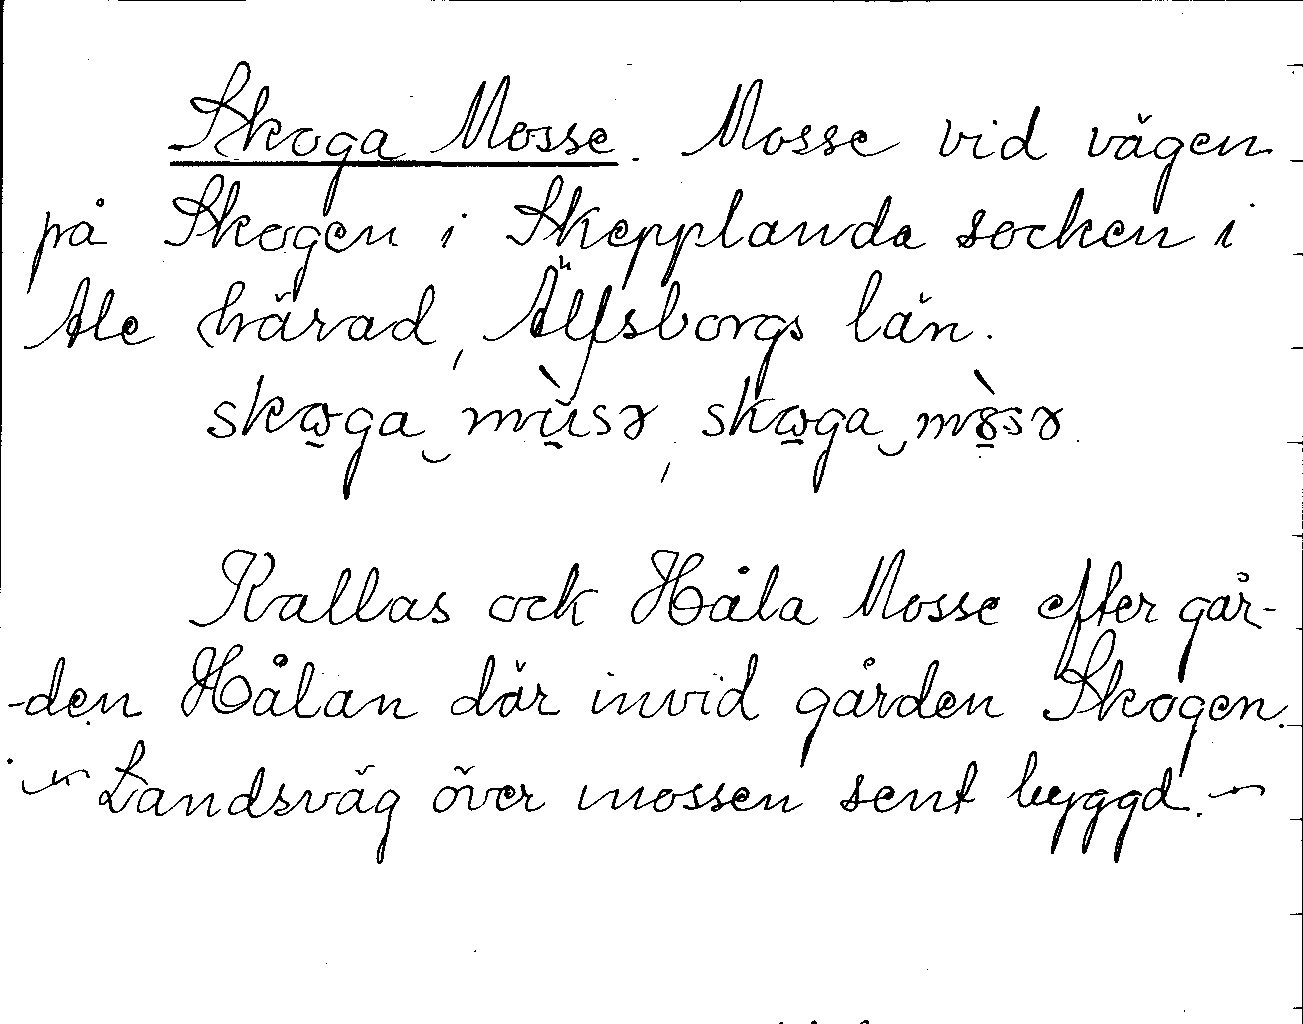 Skoga Mosse. Mosse vid vägen
på Skogen i Skepplanda socken i
Ale härad, Älfsborgs län.
skɷga‿mùsɘ, skɷga‿mòsɘ
Kallas ock Håla Mosse efter går-
-den Hålan där invid gården Skogen.
~ Landsväg över mossen sent byggd. ~